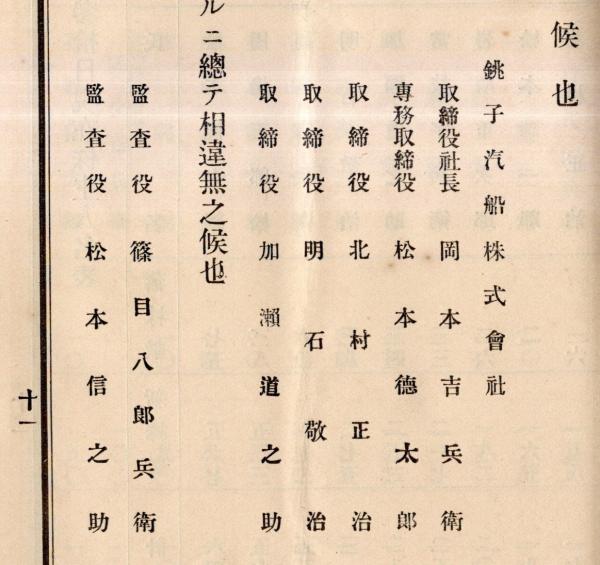 候也
銚子汽船株式會社
取締役社長 岡本吉兵衛
専務取締役 松本德太郎
取締役 北村正治
取締役 明石敬治
取締役 加瀬道之助
ルニ總テ相違無之候也
監査役 篠目八郎兵衛
監査役 松本信之助
十一